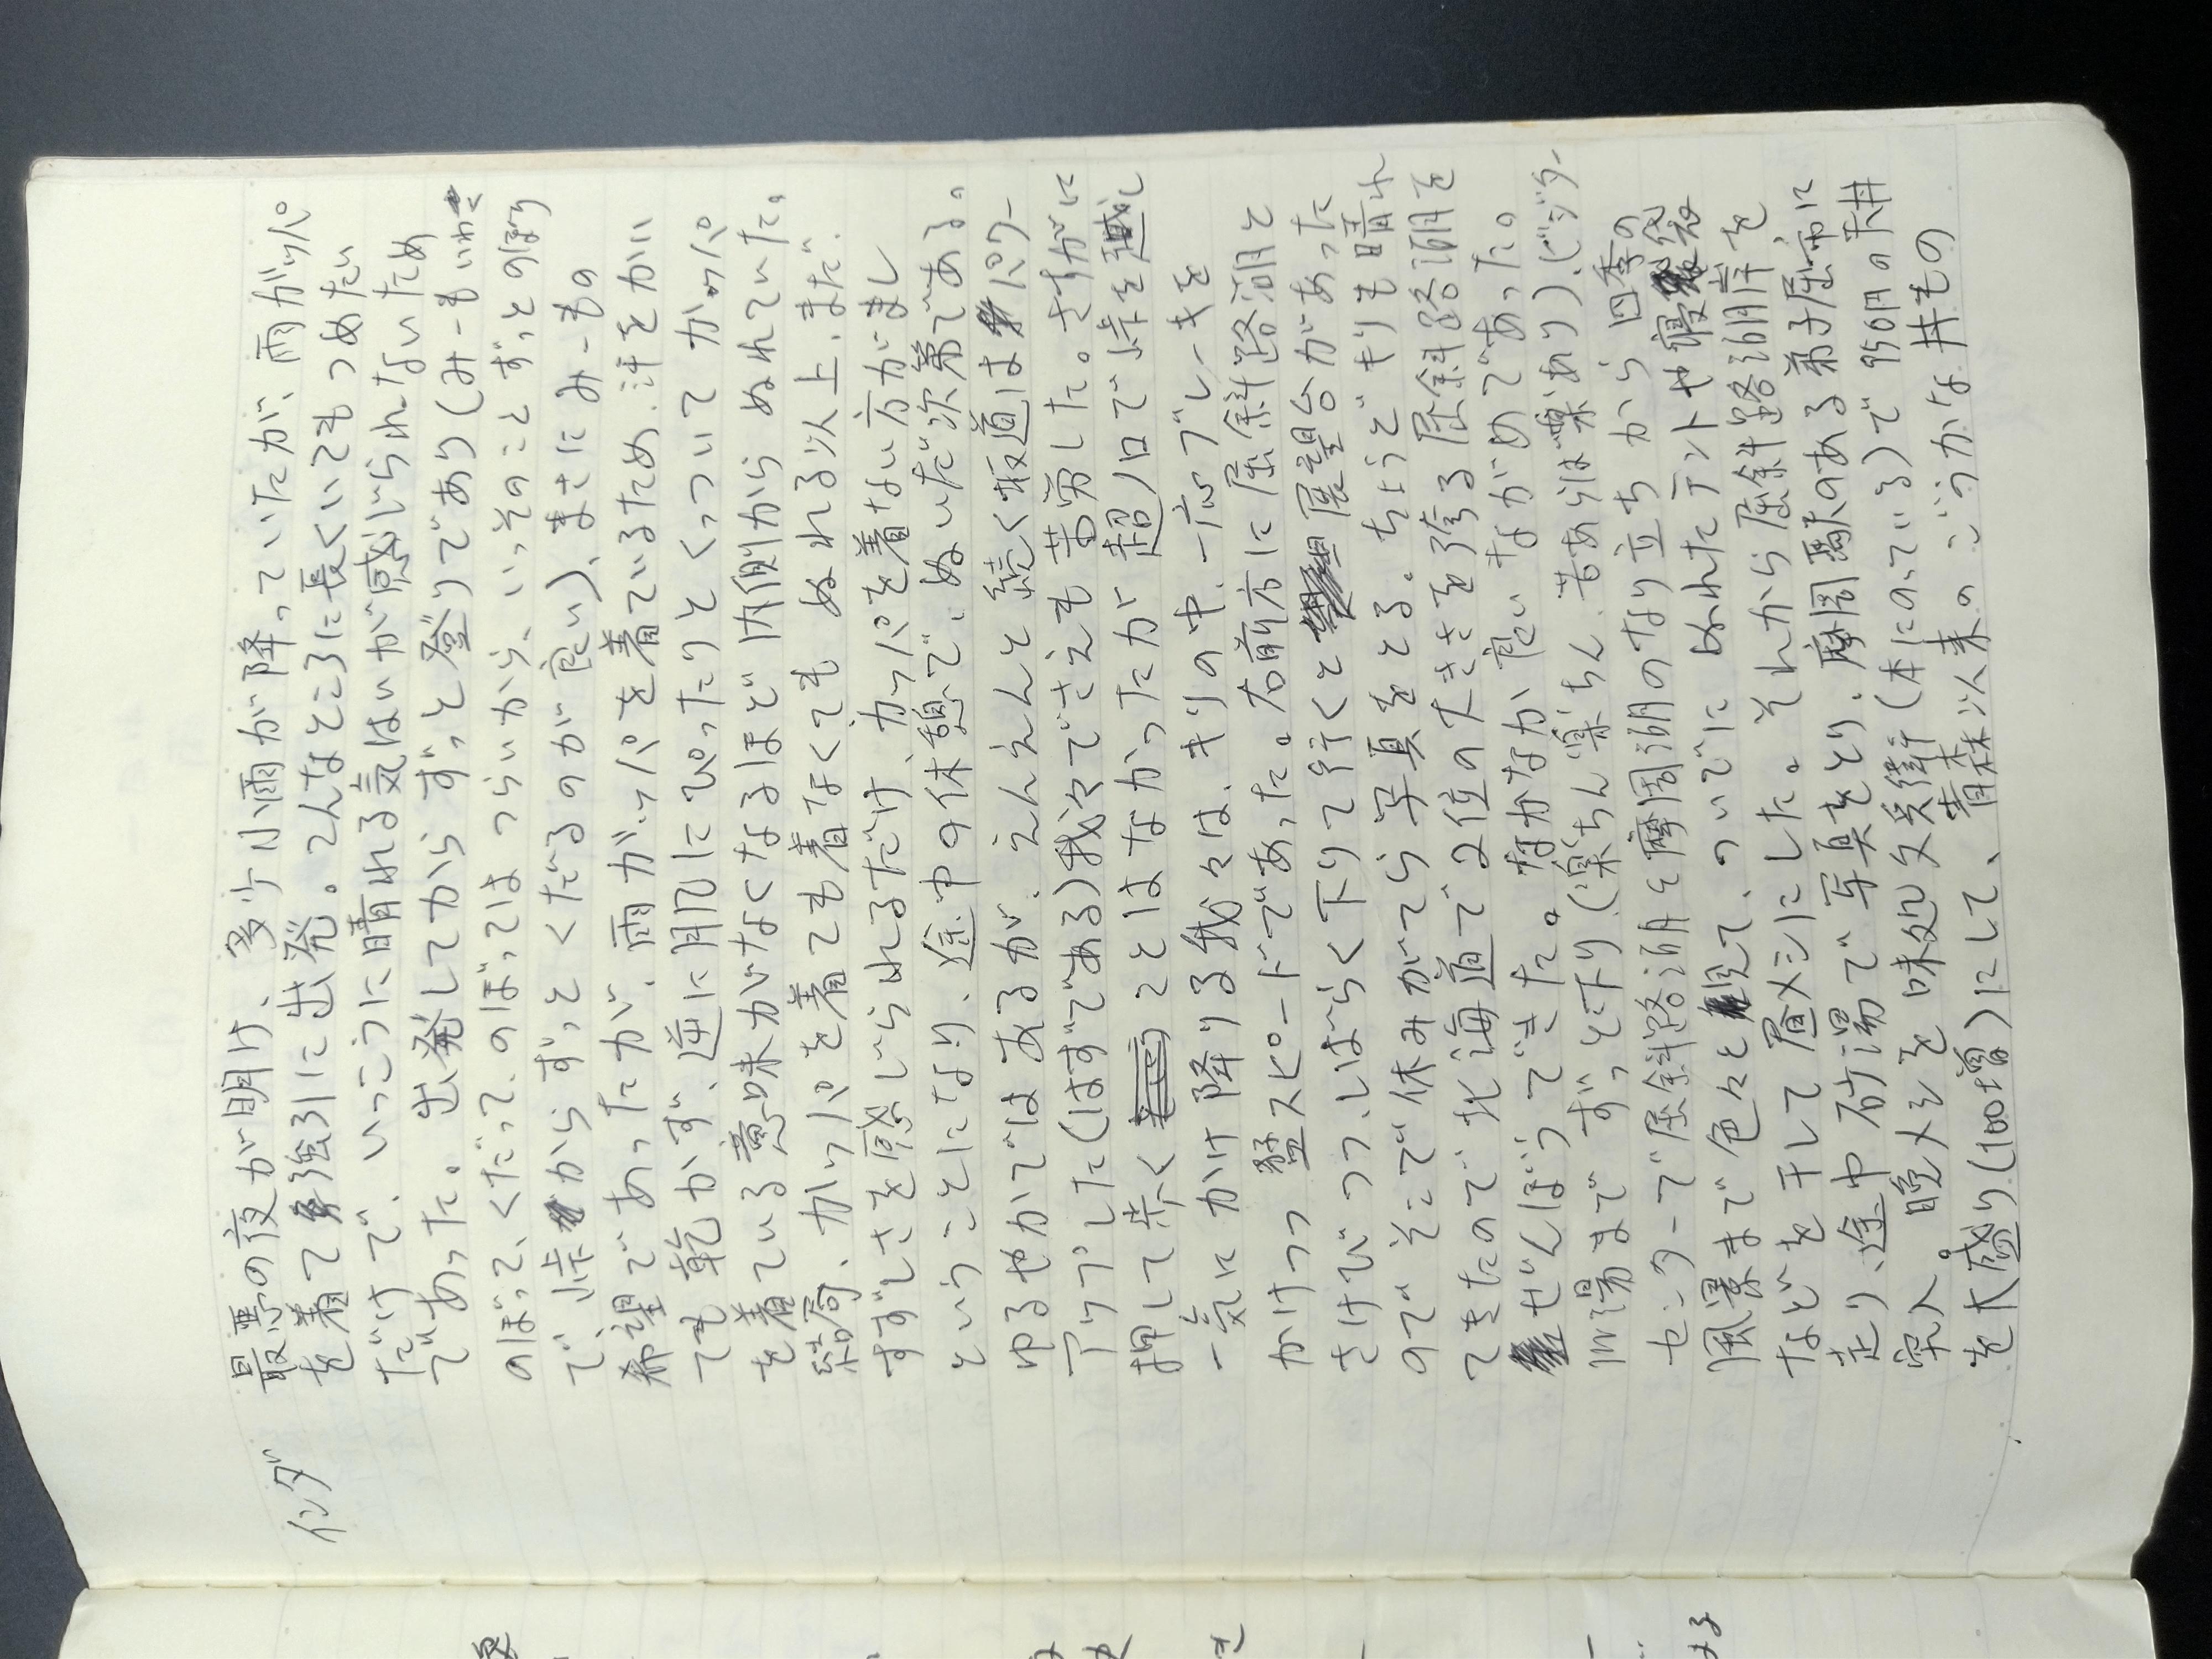 インダ
最悪の夜が明け、多少小雨が降っていたが、雨ガッパ
を着て強引に出発。こんなところに長くいてもつめたい
だけで、いっこうに晴れる気はいが感じられないため
であった。出発してからずっと登りであり(みーもいわく
のぼって、くだって、のぼってはつらいから、いっそのことずっとのぼり
で、峠からずっとくだるのが良い)、まさにみーもの
希望であったが、雨ガッパを着ているため、汗をかい
ても乾かず、逆に肌にぴったりとくっついてカッパ
を着ている意味がなくなるほど内側からぬれていた。
結局、カッパを着ても着なくてもぬれる以上、まだ
すずしさを感じられるだけ、カッパを着ない方がまし
ということになり、途中の休憩で、ぬいだ次第である。
ゆるやかではあるが、えんえんと続く坂道はパワー
アップした(はずである)我々でさえも苦労した。さすがに
押して歩くことはなかったが超ノロで峠を越し
一気にかけ降りる我々は、キリの中、一応ブレーキを
かけつつ猛スピードであった。右前方に屈斜路湖と
さけびつつ、しばらく下りて行くと展望台があった
のでそこで休みがてら写真をとる。ちょうどキリも晴れ
てきたので北海道で2位の大きさを誇る屈斜路湖を
ぜんぼうできた。なかなか良いながめであった。
川湯までずっと下り(楽ちん楽ちん、苦あらば楽あり)、ビジター
センターで屈斜路湖と摩周湖のなり立ちから四季の
風景まで色々と見て、ついでにぬれたテントや寝袋
などを干して昼メシにした。それから屈斜路湖岸を
走り、途中砂湯で写真をとり、摩周駅のある弟子屈市に
突入。晩メシを味処(本にのっている)で950円の天丼
を大盛り(100増)にして、青森以来のごうかな丼もの